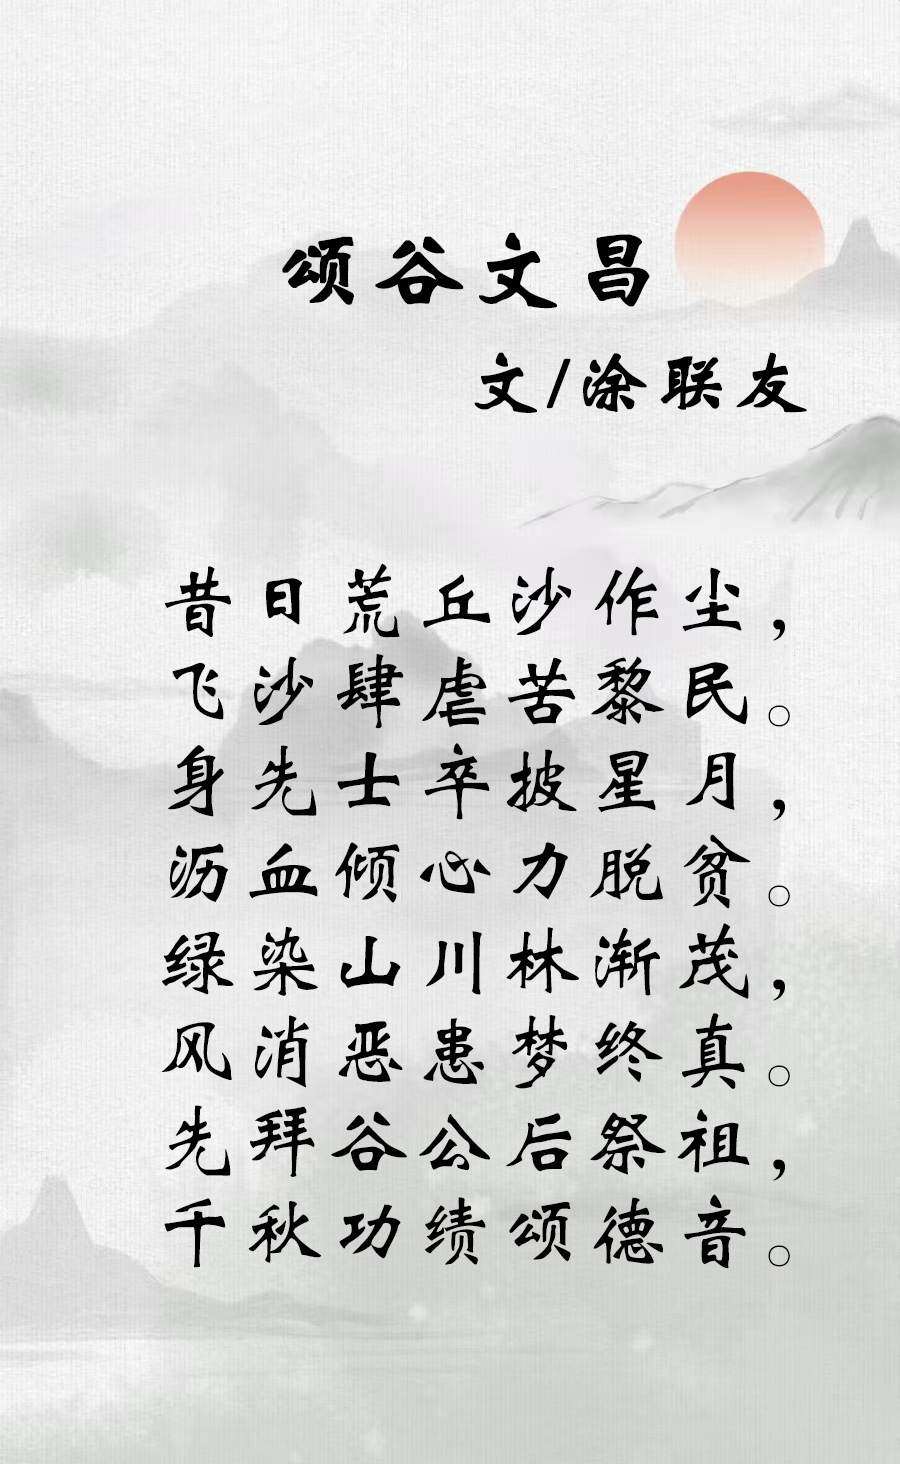 颂谷文昌
文/涂联友
昔日荒丘沙作尘，
飞沙肆虐苦黎民。
身先士卒披星月，
沥血倾心力脱贫。
绿染山川林渐茂，
风消恶患梦终真。
先拜谷公后祭祖，
千秋功绩颂德音。